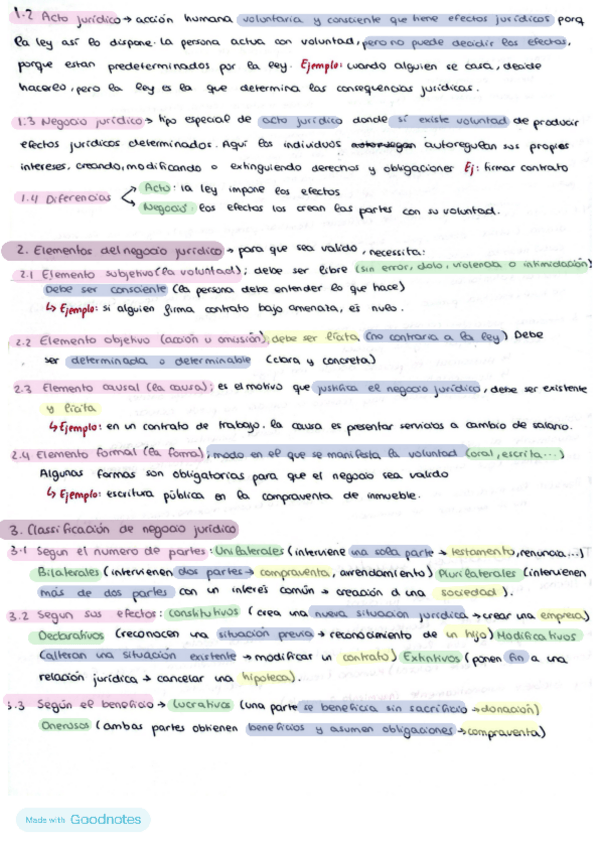 1.2 Acto jurídico → acción humana voluntaria y consciente que tiene efectos jurídicos porq
la ley así lo dispone. la persona actua con voluntad, pero no puede decidir los efectos,
porque estan predeterminados por la ley. Ejemplo: cuando alguien se casa, decide
hacerlo, pero la ley es la que determina las consecuencias jurídicas.
1.3 Negocio jurídico → tipo especial de acto jurídico donde sí existe voluntad de producir
efectos jurídicos determinados. Aquí los individuos autorregulan sus propios
intereses, creando, modificando o extinguiendo derechos y obligaciones Ej: firmar contrato
1.4 Diferencias
Acto: la ley impone los efectos
Negocio: los efectos los crean las partes con su voluntad.
2. Elementos del negocio jurídico → para que sea valido, necesita:
2.1 Elemento subjetivo (la voluntad); debe ser libre (sin error, dolo, violencia o intimidación)
Debe ser consciente (la persona debe entender lo que hace)
↳ Ejemplo: si alguien firma contrato bajo amenaza, es nulo.
2.2 Elemento objetivo (acción u omisión); debe ser lícita, (no contraria a la ley) Debe
ser determinada o determinable (clara y concreta)
2.3 Elemento causal (la causa); es el motivo que justifica el negocio jurídico, debe ser existente
y lícita
↳ Ejemplo: en un contrato de trabajo. la causa es prestar servicios a cambio de salario.
2.4 Elemento formal (la forma); modo en el que se manifiesta la voluntad (oral, escrita...)
Algunas formas son obligatorias para que el negocio sea valido
↳ Ejemplo: escritura pública en la compraventa de inmueble.
3. Classificación de negocio jurídico
3.1 Segun el numero de partes: Unilaterales (interviene una sola parte → testamento, renuncia...)
Bilaterales (intervienen dos partes → compraventa, arrendamiento) Plurilaterales (intervienen
más de dos partes con un interés común → creación d una sociedad).
3.2 Segun sus efectos: constitutivos (crea una nueva situación jurídica → crear una empresa)
Declarativos (reconocen una situación previa → reconocimiento de un hijo) Modificativos
(alteran una situación existente → modificar un contrato) Extintivos (ponen fin a una
relación jurídica → cancelar una hipoteca).
3.3 Según el beneficio → Lucrativos (una parte se beneficia sin sacrificio → donación)
Onerosos (ambas partes obtienen beneficios y asumen obligaciones → compraventa)
Made with Goodnotes